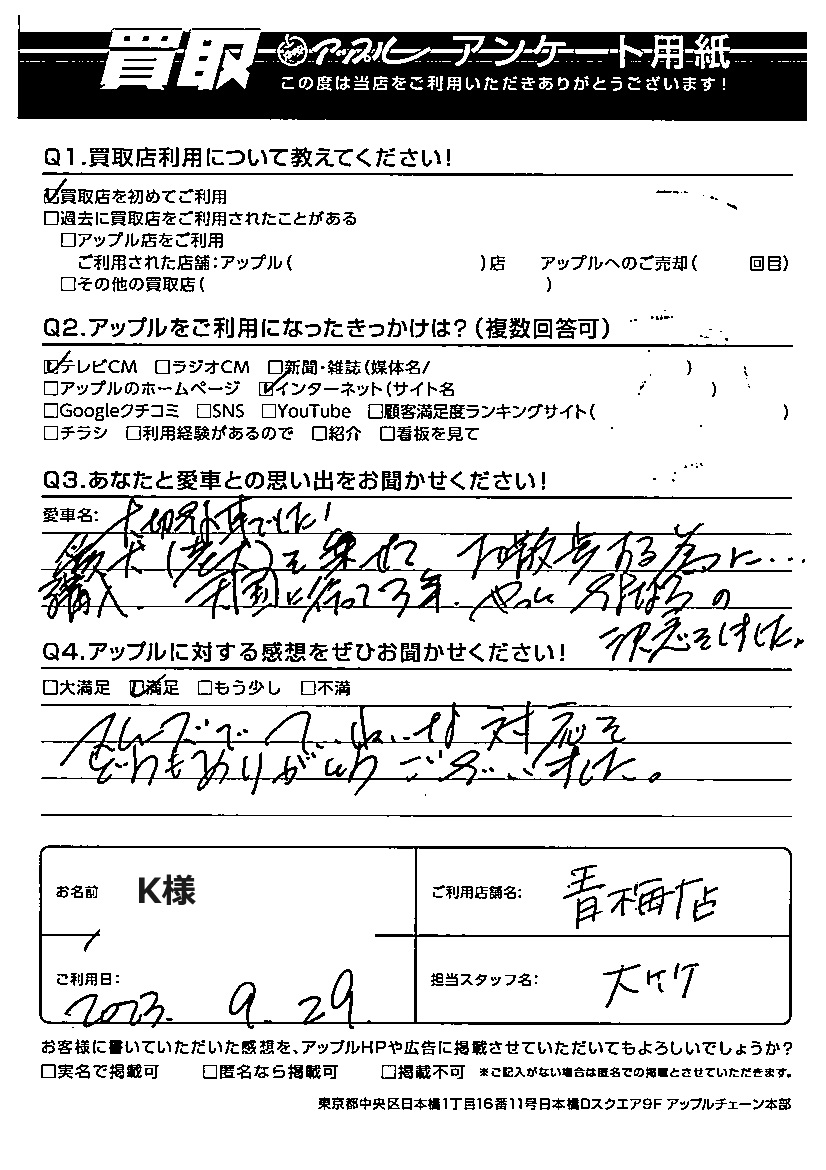 買取 アップル アンケート用紙
この度は当店をご利用いただきありがとうございます!
Q1.買取店利用について教えてください!
☑買取店を初めてご利用
□過去に買取店をご利用されたことがある
□アップル店をご利用
ご利用された店舗:アップル( )店 アップルへのご売却( 回目)
□その他の買取店( )
Q2.アップルをご利用になったきっかけは?(複数回答可)
☑テレビCM □ラジオCM □新聞・雑誌(媒体名/ )
□アップルのホームページ ☑インターネット(サイト名 )
□Googleクチコミ □SNS □YouTube □顧客満足度ランキングサイト( )
□チラシ □利用経験があるので □紹介 □看板を見て
Q3.あなたと愛車との思い出をお聞かせください!
愛車名: 大切な車でした!
愛犬(老犬)を乗せて お散歩する為に…
購入. 天国に行って3年. やっと 手ばなすの
決意をしました。
Q4.アップルに対する感想をぜひお聞かせください!
□大満足 ☑満足 □もう少し □不満
スムーズで ていねいな 対応を
どうもありがとう ございました。
お名前 K様
ご利用店舗名: 青梅店
ご利用日: 2023. 9. 29.
担当スタッフ名: 大竹
お客様に書いていただいた感想を、アップルHPや広告に掲載させていただいてもよろしいでしょうか?
□実名で掲載可 □匿名なら掲載可 □掲載不可 ※ご記入がない場合は匿名での掲載とさせていただきます。
東京都中央区日本橋1丁目16番11号日本橋Dスクエア9F アップルチェーン本部